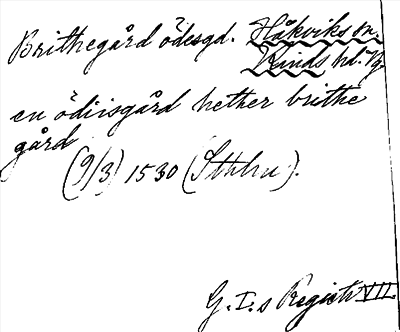 Brithegård ödesgd. Håkviks sn.
Kinds hd. Vg.
en ödiisgård hether brithe
gård
(9/3) 1530 (Sthlm).
G. I. s Registr VII